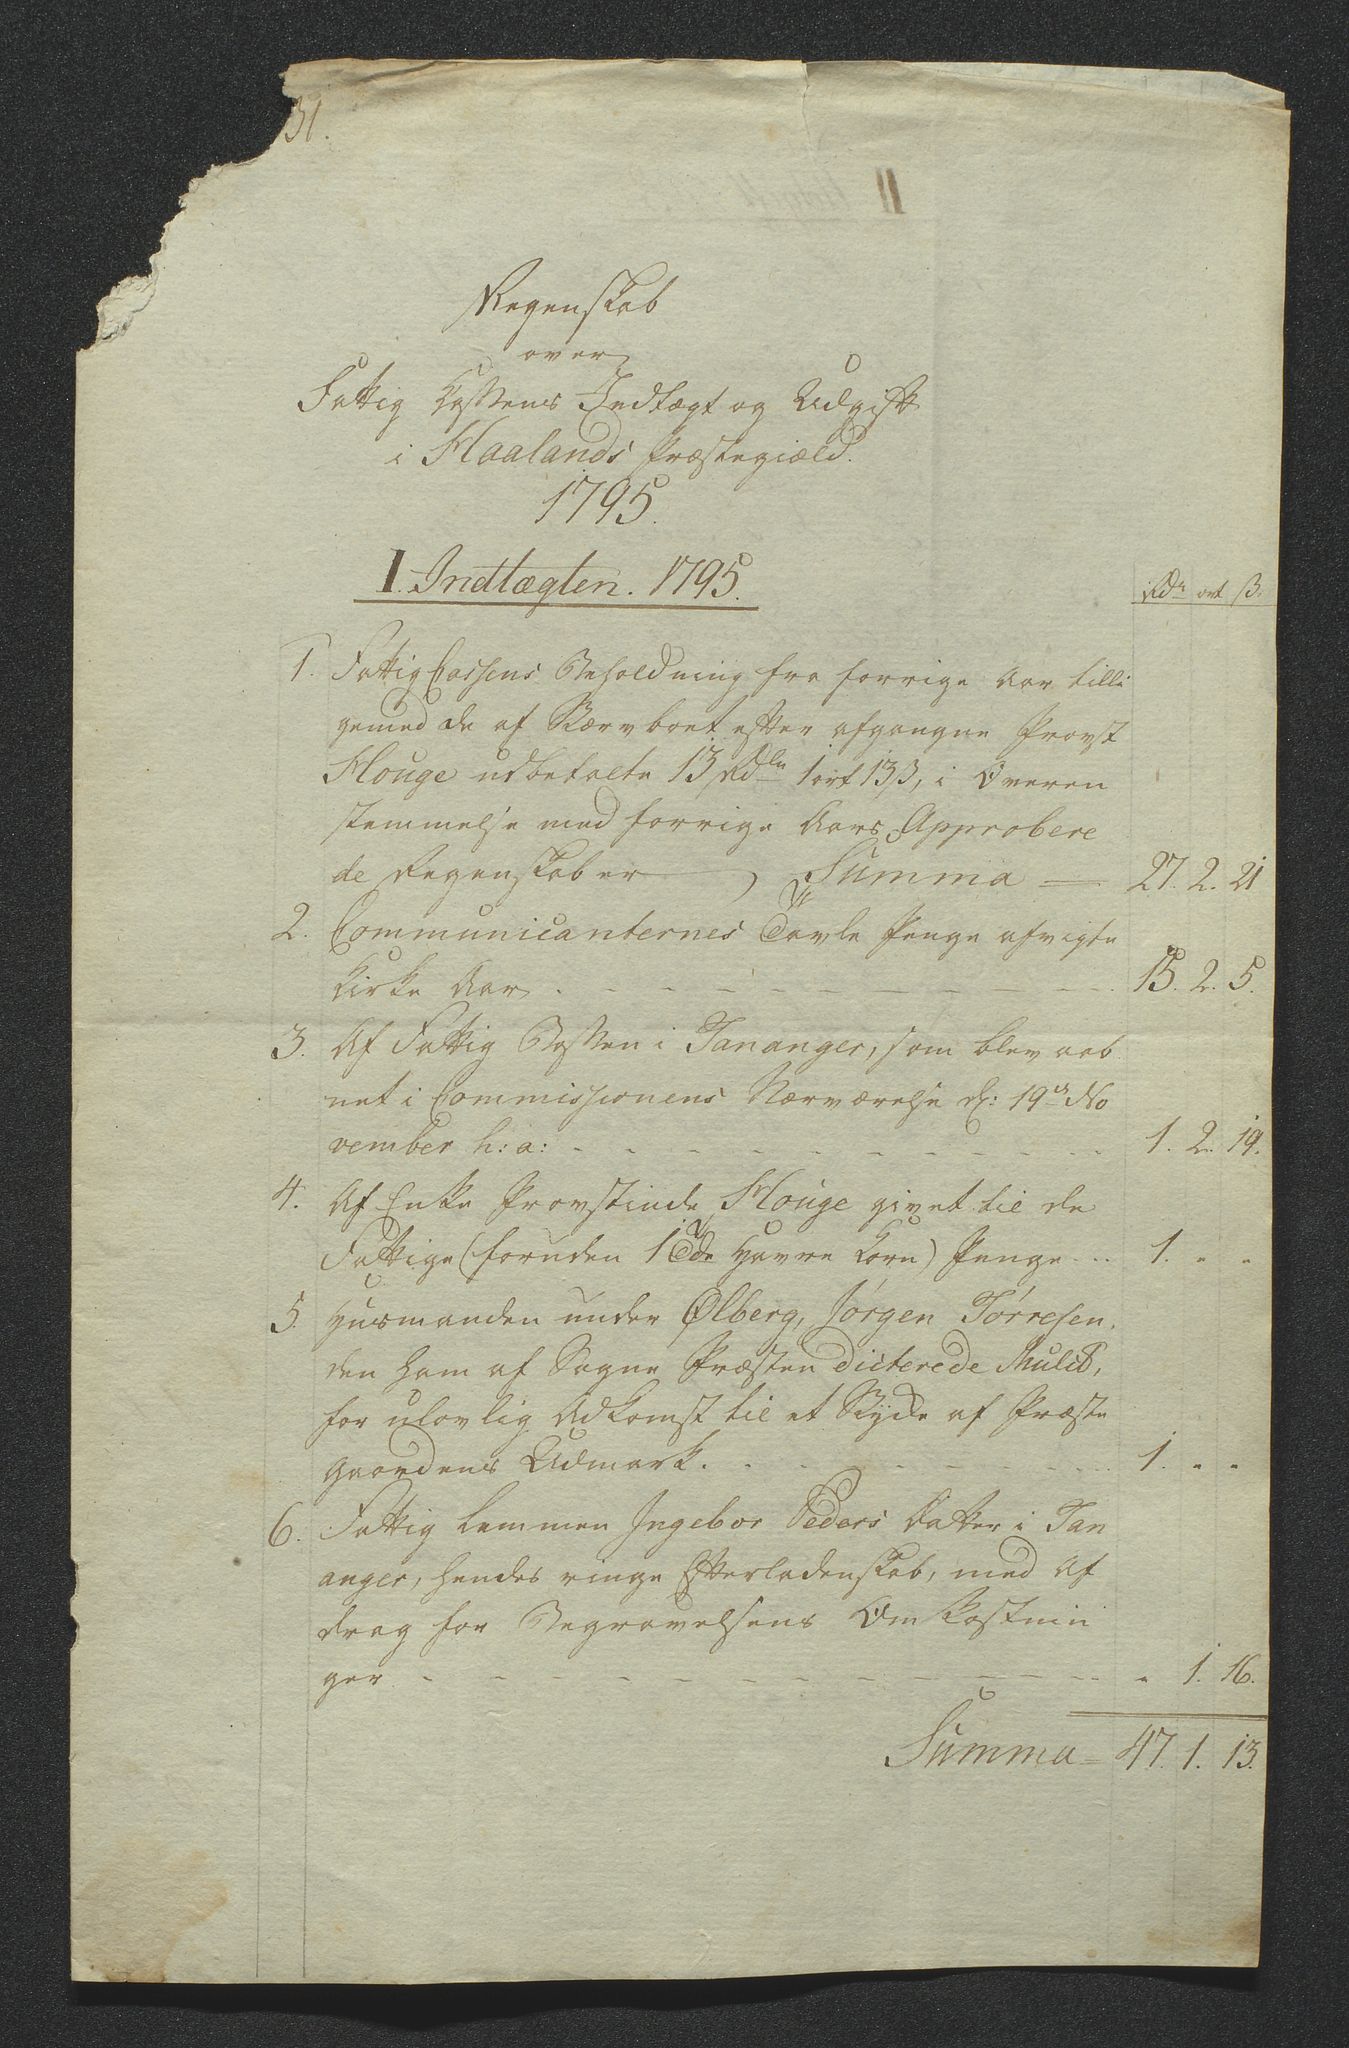 31.
Regenskab
over
Fattig Cassens Indtægt og Udgift
i Haalands Præstegiæld.
1795.
I. Indtægten. 1795.
Rdr ort ß.
1. Fattig Cassens Beholdning fra forrige Aar tilli
gemed de af Stervboet efter afgangne Provst
Houge udbetalte 13 Rdlr 1 ort 13 ß, i Overen
stemmelse med forrige Aars Approbere
de Regenskaber Summa 27. 2. 21
2. Communicanternes Tavle Penge afvigte
Kirke Aar 15. 2. 5.
3. Af Fattig Bøssen i Tananger, som blev aab
net i Commissionens Nærværelse d: 19de No
vember h: a: 1. 2. 19.
4. Af Enke Provstinde Houge givet til de
Fattige (foruden 1 Tde Havre Korn) Penge 1. " "
5. Huusmanden under Ølberg, Jørgen Tørresen,
den ham af Sogne Præsten dicterede Mulct,
for ulovlig Adkomst til et Stykke af Præste
Gaardens Udmark. 1. " "
6. Fattig Lemmen Ingebor Peders Datter i Tan
anger, hendes ringe Efterladenskab, med Af
drag for Begravelsens Omkostnin
ger " 1. 16.
Summa 47. 1. 13.